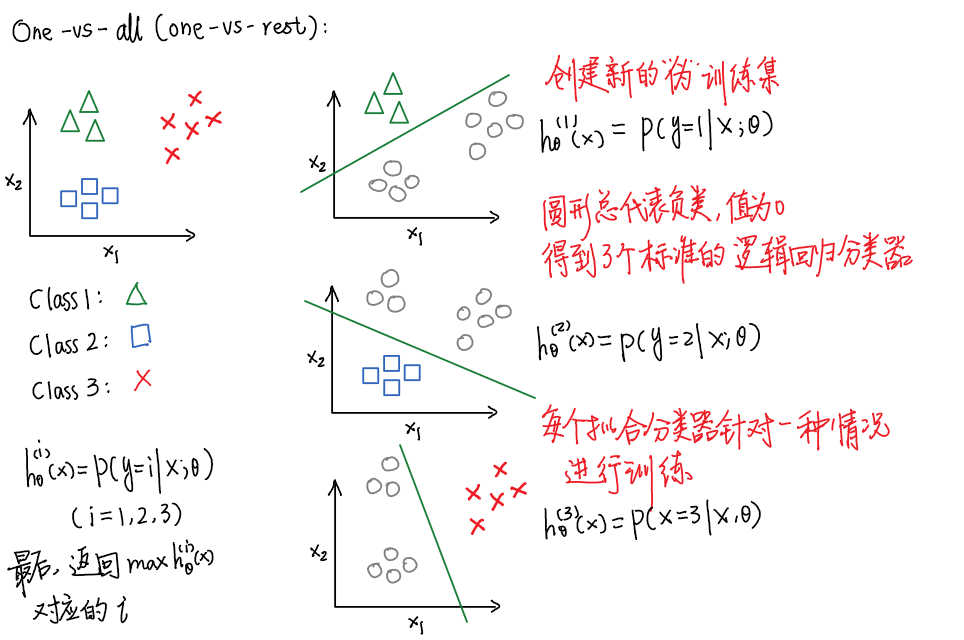 One-vs-all (one-vs-rest):
x₂
x₁
Class 1:
Class 2:
Class 3:
hθ⁽ⁱ⁾(x)=p(y=i|x;θ)
(i=1,2,3)
最后,返回 max hθ⁽ⁱ⁾(x)
对应的 i
x₂
x₁
创建新的"伪"训练集
hθ⁽¹⁾(x) = p(y=1|x;θ)
圆形总代表负类,值为0
得到3个标准的逻辑回归分类器
x₂
x₁
hθ⁽²⁾(x)=p(y=2|x;θ)
每个拟合分类器针对一种情况
进行训练
x₂
x₁
hθ⁽³⁾(x)=p(x=3|x,θ)